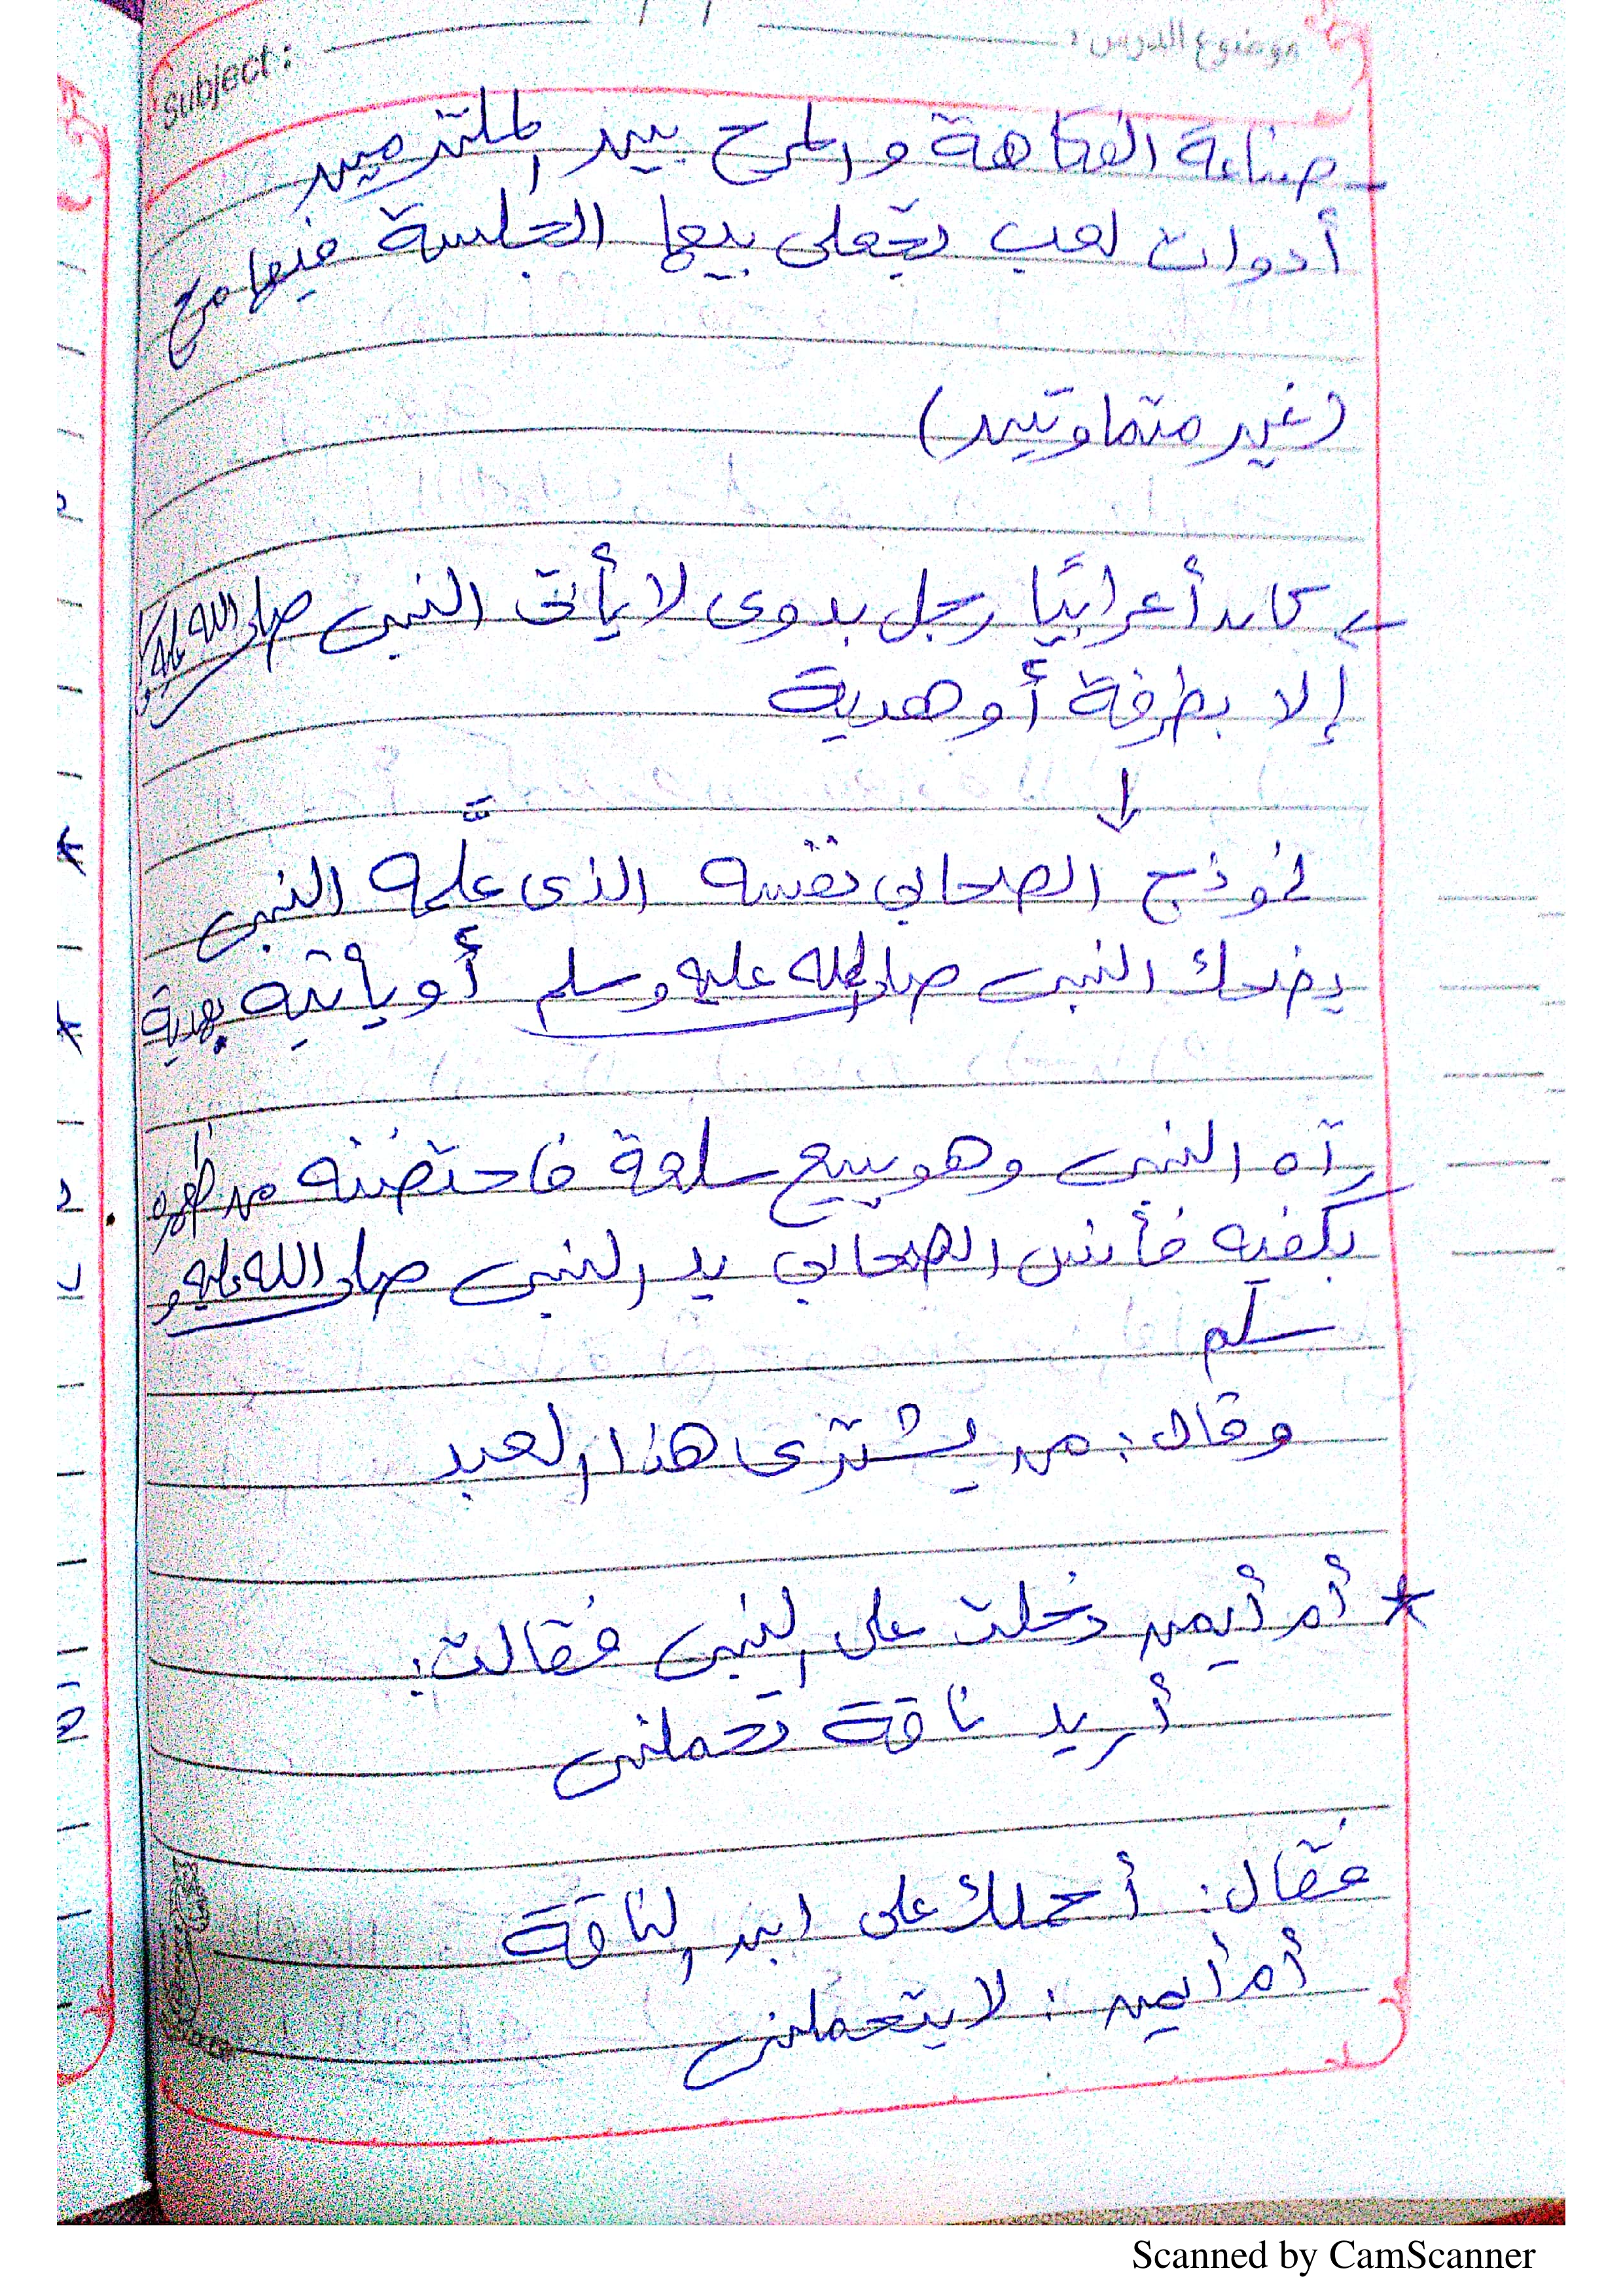 Subject :
موضوع الدرس :
صناعة الفكاهة والمرح بين الملتزمين
أدوات لعب تجعلى بيها الجلسة فيها مرح
(غير متماوتين)
كان أعرابيًا رجل بدوى لا يأتى النبى صلى الله عليه و
إلا بطرفة أو هدية
↓
نموذج الصحابي نفسه الذى علَّمه النبى
يضحك النبى صلى الله عليه وسلم أو يأتيه بهدية
رآه النبى وهو يبيع سلعة فاحتضنه من ظهره
بكفيه فأنس الصحابي يد النبى صلى الله عليه و
سلم
وقال : من يشترى هذا العبد
* أم أيمن دخلت على النبى فقالت :
أريد ناقة تحملنى
فقال : أحملك على ابن الناقة
أم أيمن : لا يتحملنى
Scanned by CamScanner